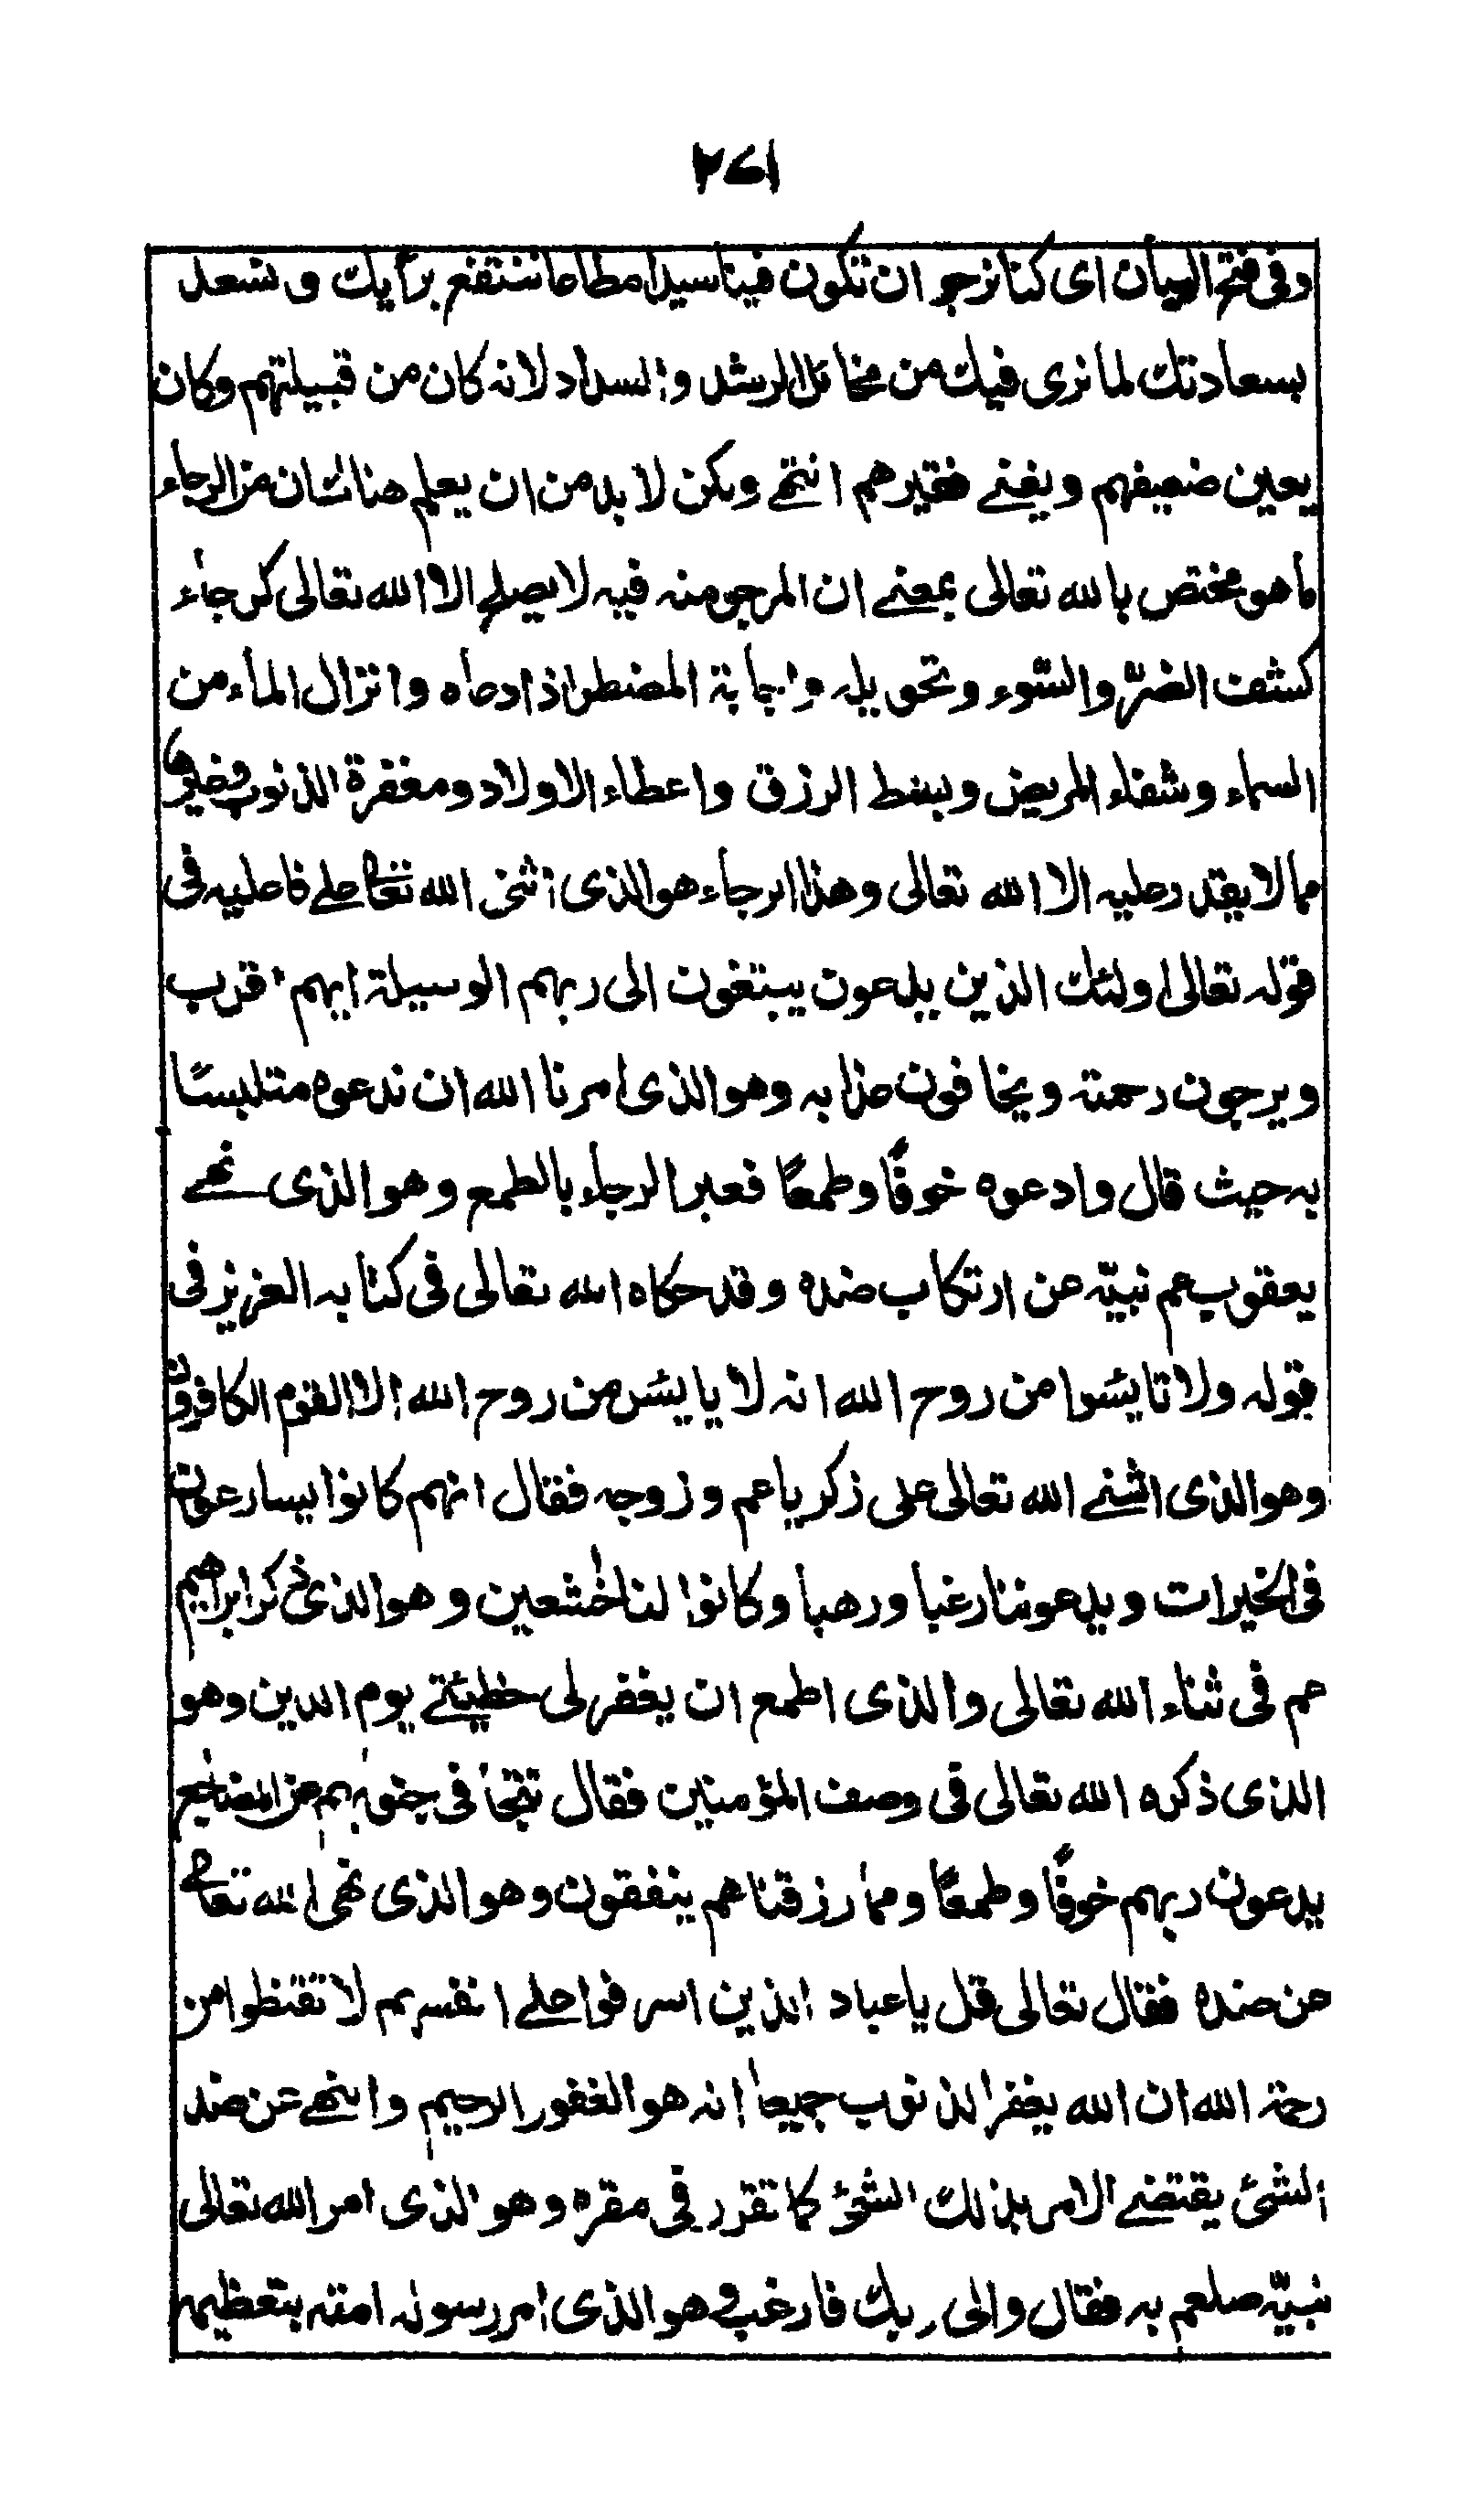 ٢٤١
وفى فتح البيان اى كنا نرجو ان تكون فينا سيدا مطاعا ننتفع برأيك و نسعد
بسعادتك لما نرى فيك من مخائل الرشد والسداد لانه كان من قبيلتهم وكان
يعين ضعيفهم ويغنے فقيرهم انتهے ولكن لا بد من ان يعلم هنا ان من الرجاء
ما هو مختص بالله تعالى بمعنے ان المرجو منه فيه لا يصلح الا الله تعالى كرجاء
كشف الضر والسوء وتحويله واجابة المضطر اذا دعاه وانزال الماء من
السماء وشفاء المريض وبسط الرزق واعطاء الاولاد ومغفرة الذنوب وغيرها
مما لا يقدر عليه الا الله تعالى وهذا الرجاء هو الذى اثنى الله تعالى علے فاعليه فى
قوله تعالى اولئك الذين يدعون يبتغون الى ربهم الوسيلة ايهم اقرب
ويرجون رحمته ويخافون عذابه وهو الذى امرنا الله ان ندعوه متلبسًا
به حيث قال وادعوه خوفًا وطمعًا فعبر الرجاء بالطمع وهو الذى نهے
يعقوب عم نبيّه عن ارتكاب ضده وقد حكاه الله تعالى فى كتابه العزيز فى
قوله ولا تايئسوا من روح الله انه لا يايئس من روح الله الا القوم الكافرون
وهو الذى اثنے الله تعالى على ذكريا عم وزوجه فقال انهم كانوا يسارعون
فى الخيرات ويدعوننا رغبا ورهبا وكانوا لنا خٰشعين وهو الذى ذكر ابراهيم
عم فى ثناء الله تعالى والذى اطمع ان يغفر لى خطيئتے يوم الدين وهو
الذى ذكره الله تعالى فى وصف المؤمنين فقال تتجافى جنوبهم عن المضاجع
يدعون ربهم خوفًا وطمعًا ومما رزقناهم ينفقون وهو الذى نهى الله تعالى
عن ضده فقال تعالى قل يا عباد الذين اسرفوا علے انفسهم لا تقنطوا من
رحمة الله ان الله يغفر الذنوب جميعا انه هو الغفور الرحيم والنهے عن ضد
الشئ يقتضے الامر بذلك الشئ كما تقرر فى مقره وهو الذى امر الله تعالى
نبيّه صلعم به فقال والى ربك فارغب وهو الذى امر رسوله امته بتعظيمه